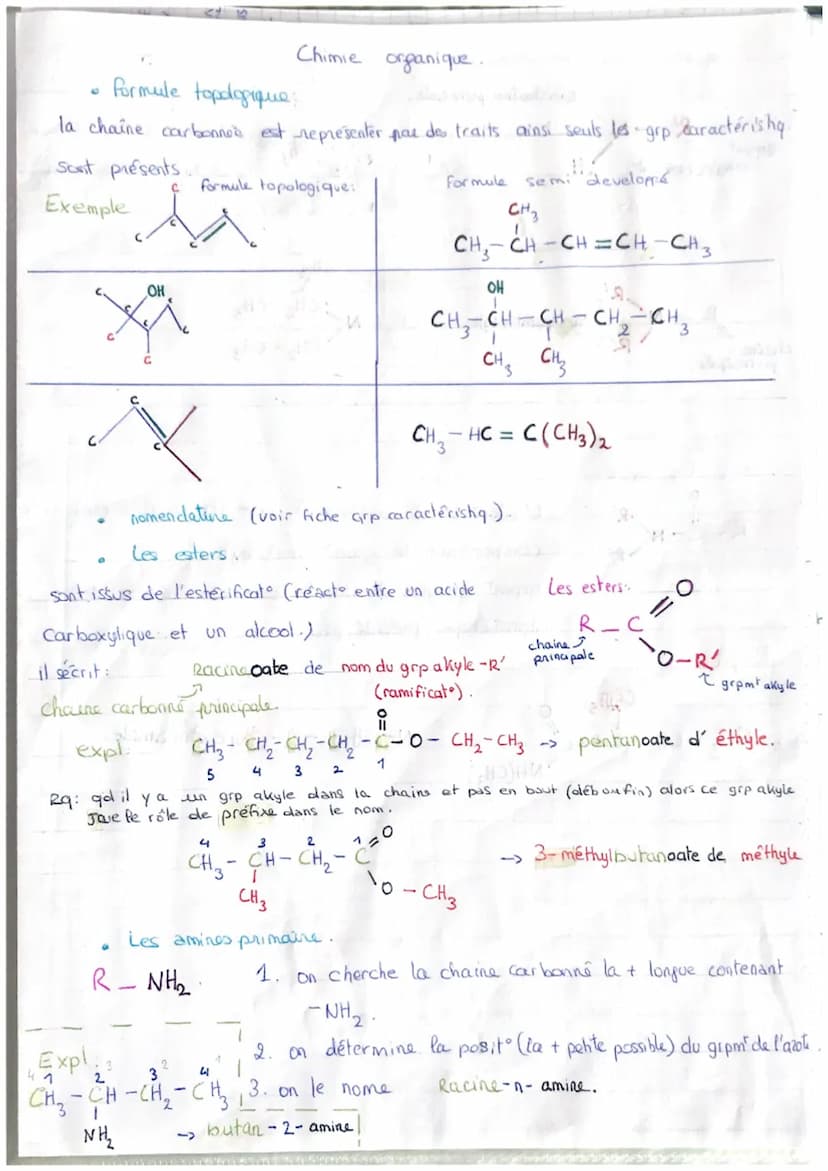 Chimie organique.
• formule topologique:
la chaîne carbonnés est représenter par des traits ainsi seuls les grp caractéristiq
sont présents.
Exemple
formule topologique:
Formule semi developpé
C C C C C
CH3
CH3-CH-CH=CH-CH3
C OH C C C C C C
OH
CH3-CH-CH-CH2-CH3
CH3 CH3
C C C
CH3-HC=C(CH3)2
• nomenclature (voir fiche grp caractéristiq.).
• Les esters.
sont issus de l'estérificat° (réact° entre un acide
Carboxylique et un alcool.)
Les esters.
O
R-C
chaine principale
O-R'
grpmt akyle
il sécrit:
Racine oate de nom du grp akyle -R'
(ramificat°).
chaine carbonné principale.
expl.
O
CH3-CH2-CH2-CH2-C-O-CH2-CH3 -> pentanoate d' éthyle.
5 4 3 2 1
Rq: qd il y a un grp akyle dans la chaîne et pas en bout (déb ou fin) alors ce grp akyle
joue le rôle de préfixe dans le nom.
4 3 2 1 O
CH3-CH-CH2-C
-> 3-méthylbutanoate de méthyle
CH3
O-CH3
• Les amines primaire.
R-NH2.
1. on cherche la chaine carbonné la + longue contenant
-NH2.
2. on détermine la posit° (la + petite possible) du grpmt de l'azote.
3. on le nome Racine-n-amine.
Expl:
1 2 3 4
4 3 2 1
CH3-CH-CH2-CH3
NH2
-> butan-2-amine